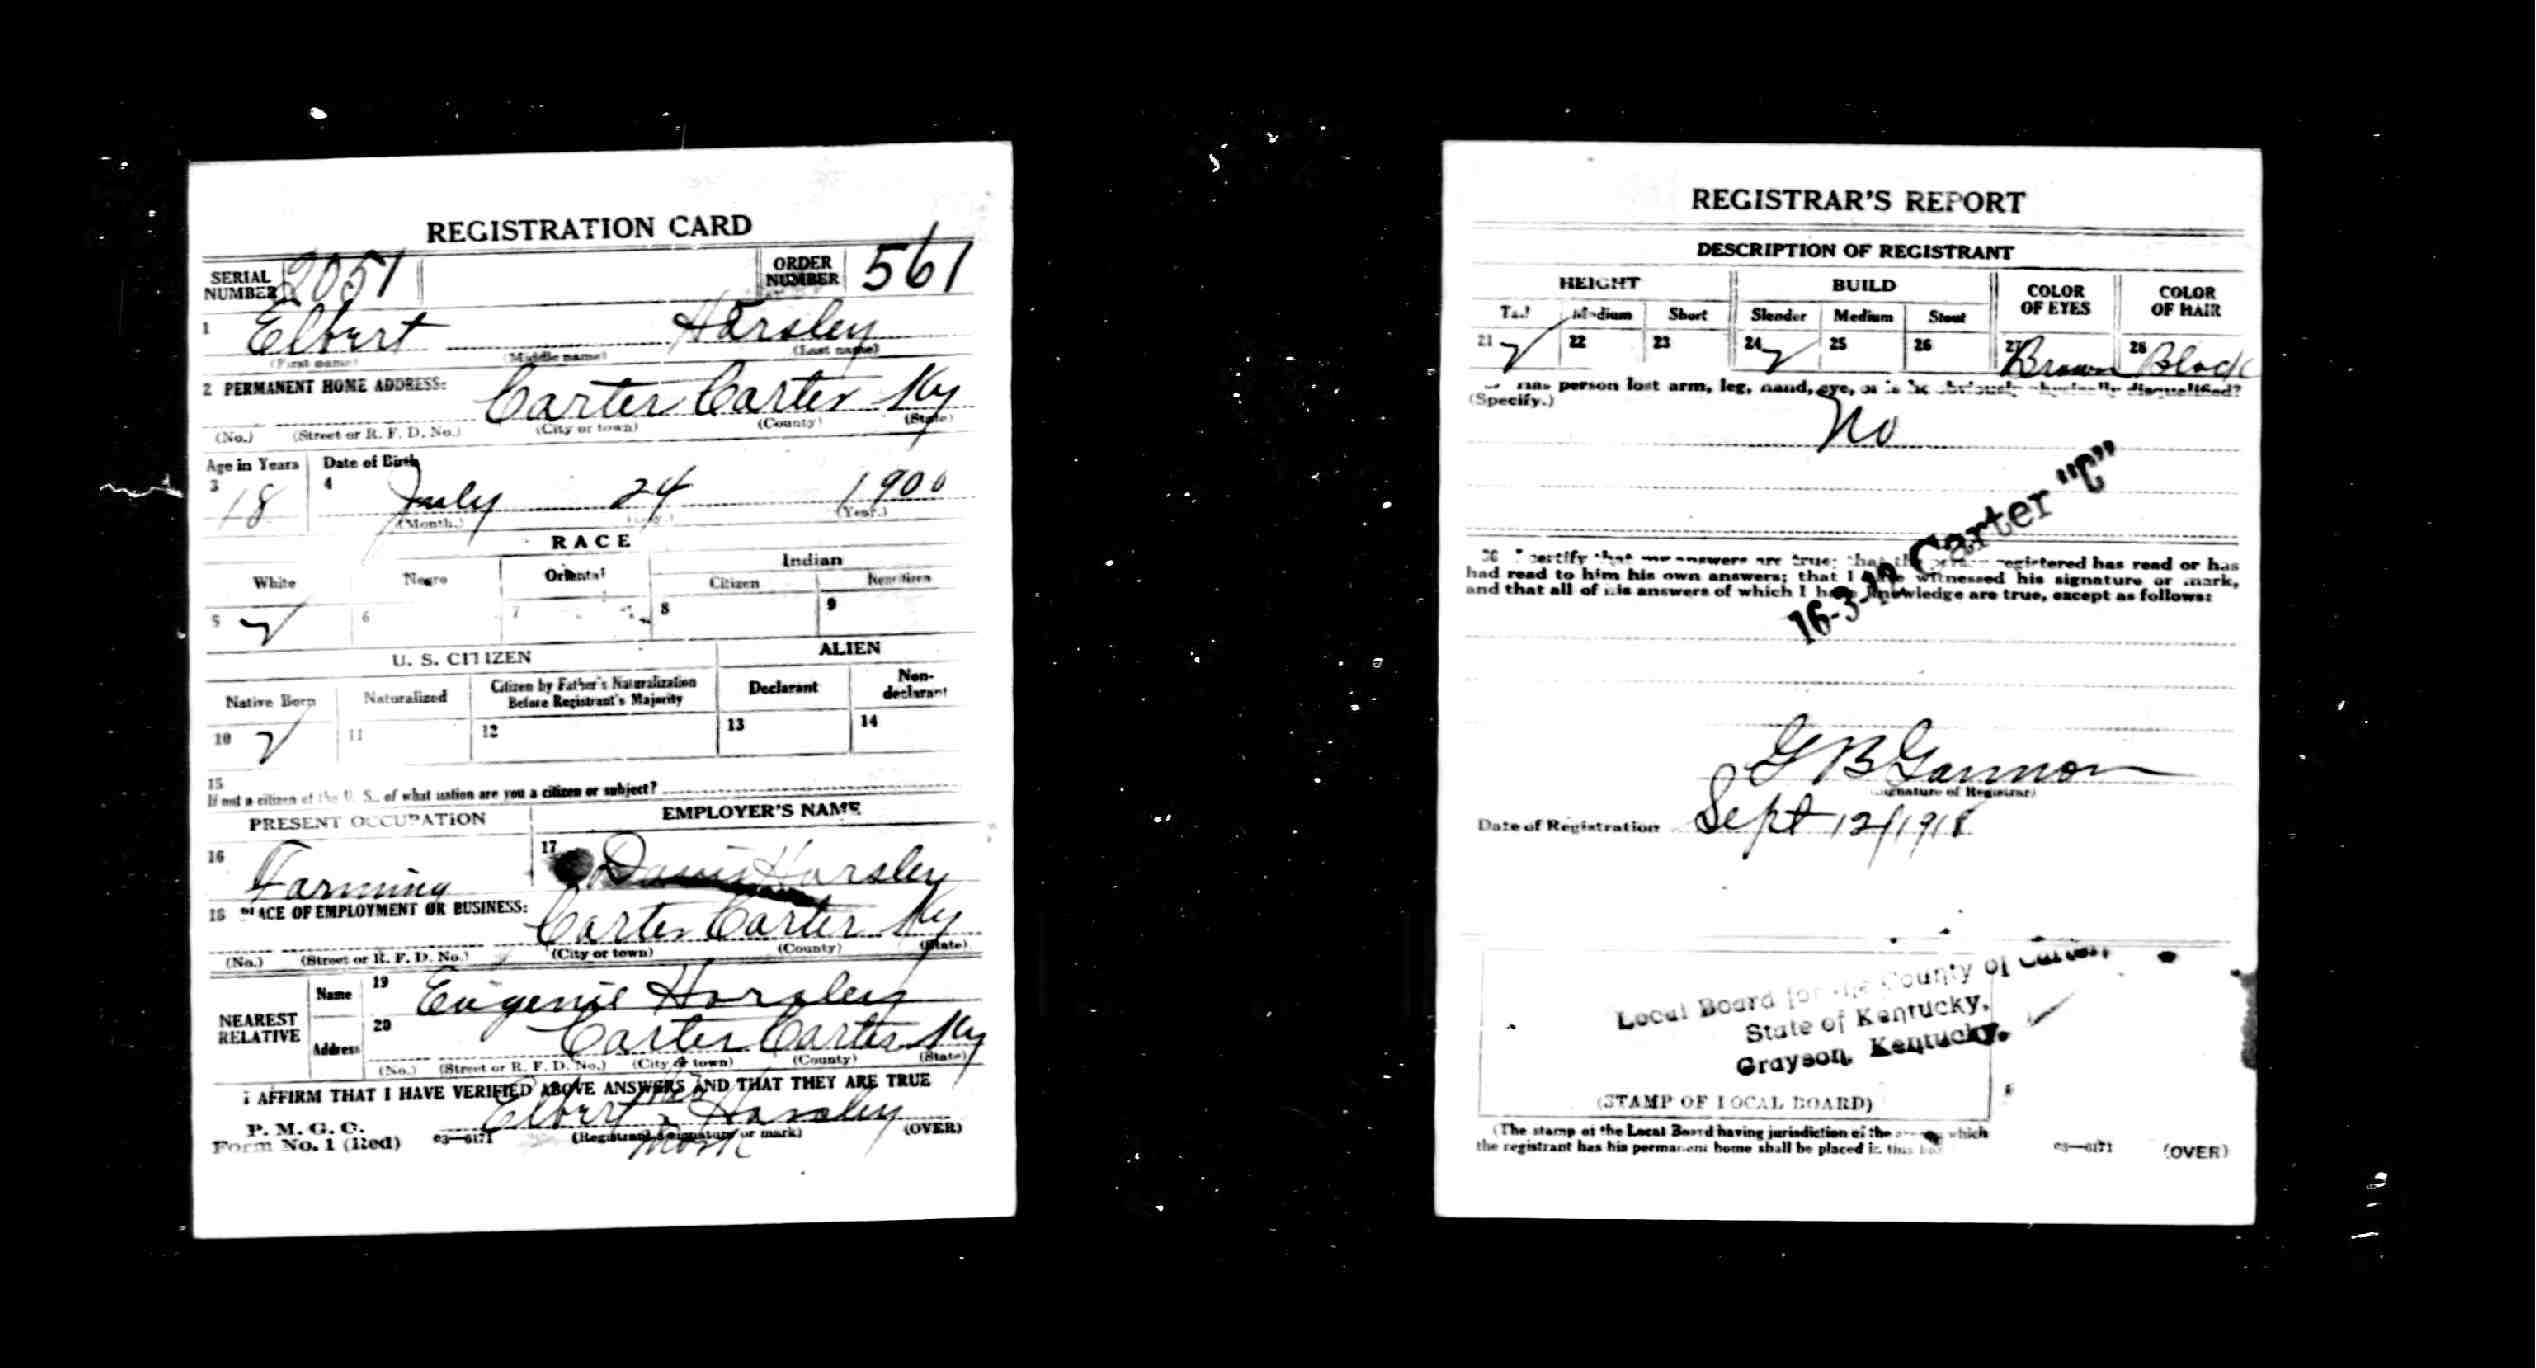 REGISTRATION CARD
SERIAL NUMBER 2051 ORDER NUMBER 561
1 Elbert Harsley
(First name) (Middle name) (Last name)
2 PERMANENT HOME ADDRESS:
Carter Carter Ky
(No.) (Street or R. F. D. No.) (City or town) (County) (State)
Age in Years Date of Birth
3 18 4 July 24 1900
(Month.) (Year.)
RACE
White Negro Oriental Indian
Citizen Noncitizen
5 ✓ 6 7 8 9
U. S. CITIZEN ALIEN
Native Born Naturalized Citizen by Father's Naturalization Before Registrant's Majority Declarant Non-declarant
10 ✓ 11 12 13 14
15
If not a citizen of the U. S., of what nation are you a citizen or subject?
PRESENT OCCUPATION EMPLOYER'S NAME
16 Farming 17 Harsley
18 PLACE OF EMPLOYMENT OR BUSINESS:
Carter Carter Ky
(No.) (Street or R. F. D. No.) (City or town) (County) (State)
NEAREST RELATIVE
Name 19 Eugenie Horsley
Address 20 Carter Carter Ky
(No.) (Street or R. F. D. No.) (City or town) (County) (State)
I AFFIRM THAT I HAVE VERIFIED ABOVE ANSWERS AND THAT THEY ARE TRUE
Elbert x Harsley
P. M. G. O.
Form No. 1 (Red) 03—6171 (Registrant's signature or mark) (OVER)
mark
REGISTRAR'S REPORT
DESCRIPTION OF REGISTRANT
HEIGHT BUILD COLOR OF EYES COLOR OF HAIR
Tall Medium Short Slender Medium Stout
21 ✓ 22 23 24 ✓ 25 26 27 Brown 28 Black
Has person lost arm, leg, hand, eye, or is he obviously physically disqualified?
(Specify.)
No
30 I certify that my answers are true; that the person registered has read or has
had read to him his own answers; that I have witnessed his signature or mark,
and that all of his answers of which I have knowledge are true, except as follows:
Carter "C"
G B Gannon
(Signature of Registrar)
Date of Registration Sept 12/1918
Local Board for the County of Carter,
State of Kentucky,
Grayson, Kentucky.
(STAMP OF LOCAL BOARD)
(The stamp of the Local Board having jurisdiction of the which
the registrant has his permanent home shall be placed in this
03—6171 (OVER)